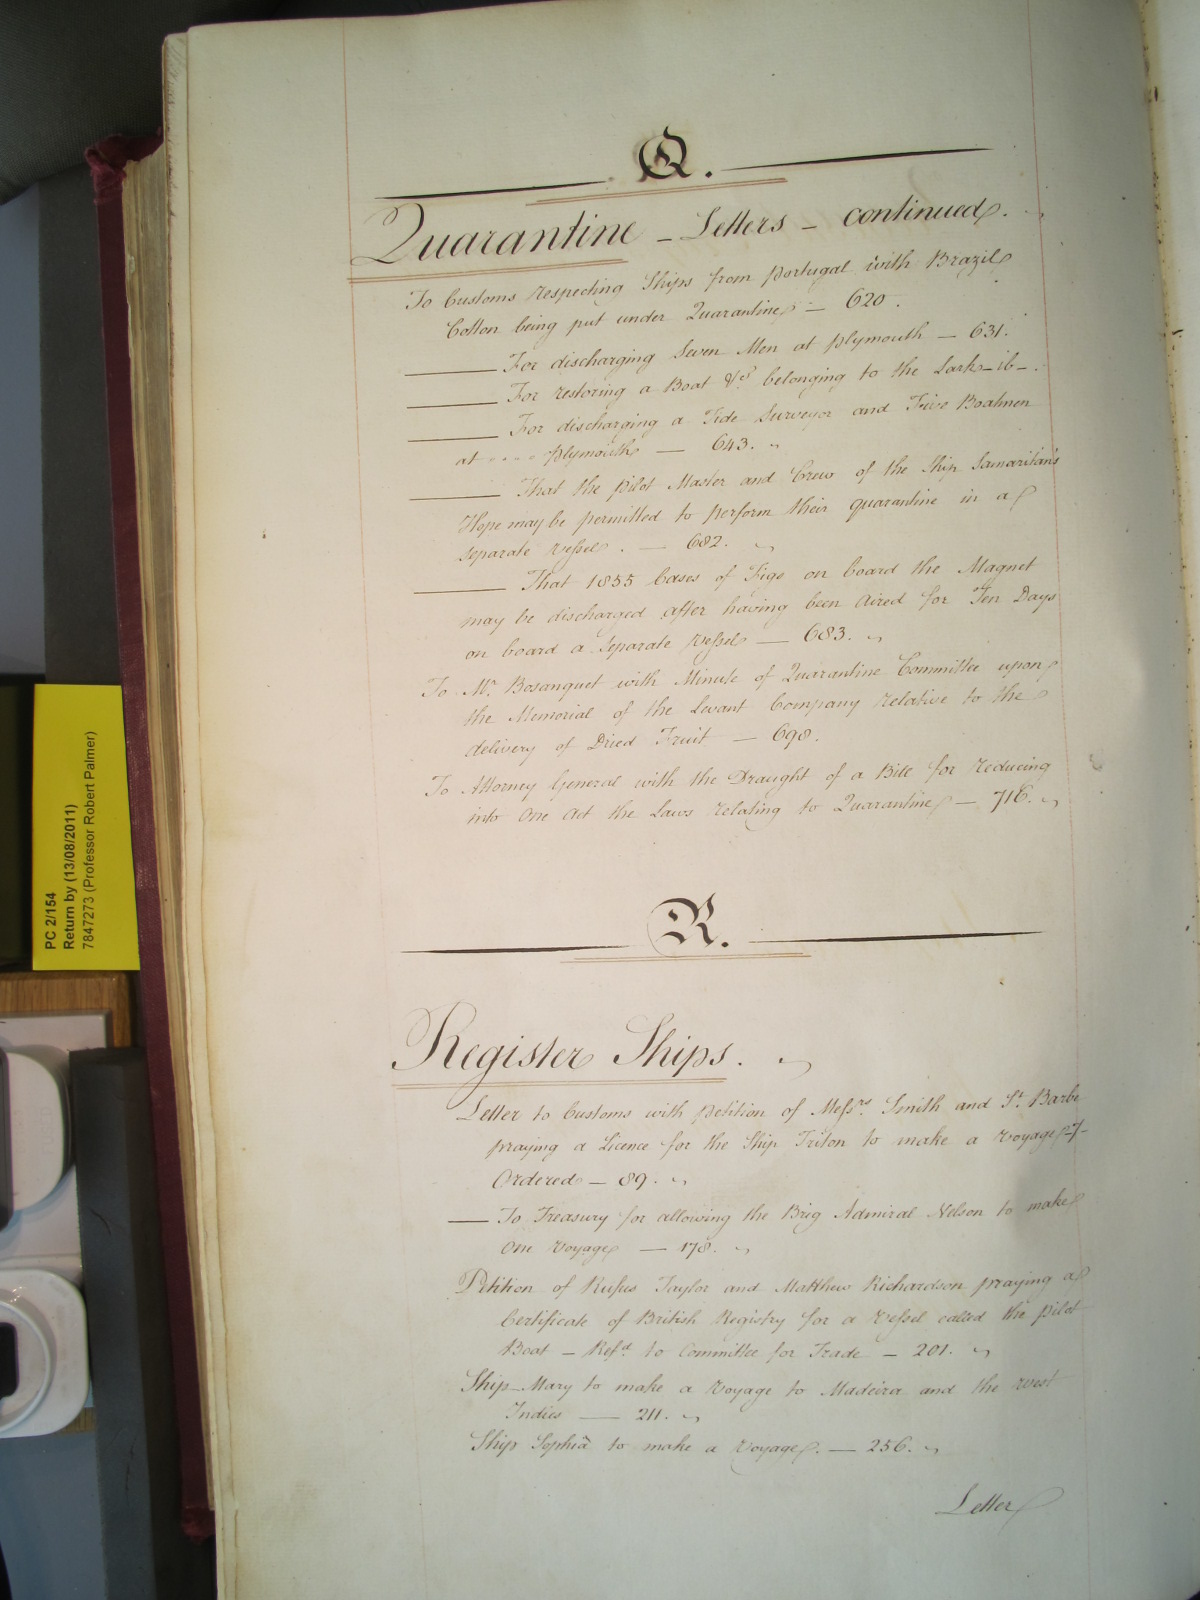 Q.
Quarantine – Letters – continued.
To Customs respecting Ships from Portugal with Brazil
Cotton being put under Quarantine – 620.
For discharging Seven Men at Plymouth – 631.
For restoring a Boat &c. belonging to the Lark – ib –.
For discharging a Tide Surveyor and Five Boatmen
at Plymouth – 643.
That the Pilot Master and Crew of the Ship Samaritan's
Hope may be permitted to perform their quarantine in a
separate Vessel. – 682.
That 1855 Cases of Figs on board the Magnet
may be discharged after having been Aired for Ten Days
on board a Separate Vessel – 683.
To Mr. Bosanquet with Minute of Quarantine Committee upon
the Memorial of the Levant Company relative to the
delivery of Dried Fruit – 698.
To Attorney General with the Draught of a Bill for reducing
into One Act the Laws relating to Quarantine – 716.
R.
Register Ships.
Letter to Customs with petition of Messrs. Smith and St. Barbe
praying a Licence for the Ship Triton to make a Voyage
Ordered – 89.
To Treasury for allowing the Brig Admiral Nelson to make
One Voyage – 178.
Petition of Rufus Taylor and Matthew Richardson praying a
Certificate of British Registry for a Vessel called the Pilot
Boat – Refd. to Committee for Trade – 201.
Ship Mary to make a Voyage to Madeira and the West
Indies – 211.
Ship Sophia to make a Voyage. – 256.
Letter
PC 2/154
Return by (13/08/2011)
7847273 (Professor Robert Palmer)